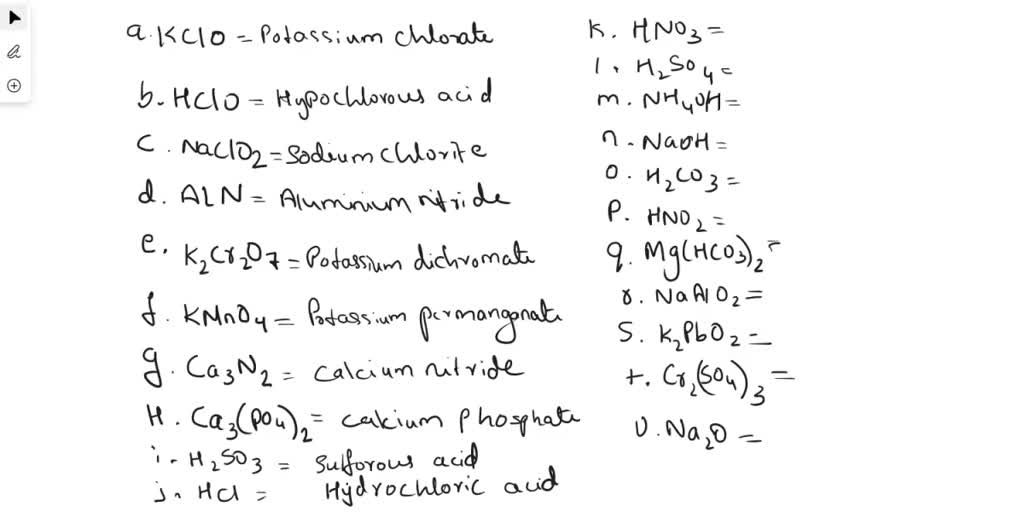 a. KClO = Potassium chlorate
b. HClO = Hypochlorous acid
C. NaClO2 = Sodium Chlorite
d. ALN = Aluminium nitride
e. K2Cr2O7 = Potassium dichromate
f. KMnO4 = Potassium permanganate
g. Ca3N2 = calcium nitride
H. Ca3(PO4)2 = calcium phosphate
i. H2SO3 = Sulforous acid
j. HCl = Hydrochloric acid
K. HNO3 =
l. H2SO4 =
m. NH4OH =
n. NaOH =
O. H2CO3 =
P. HNO2 =
q. Mg(HCO3)2 =
r. NaAlO2 =
S. K2PbO2 =
t. Cr2(SO4)3 =
U. Na2O =